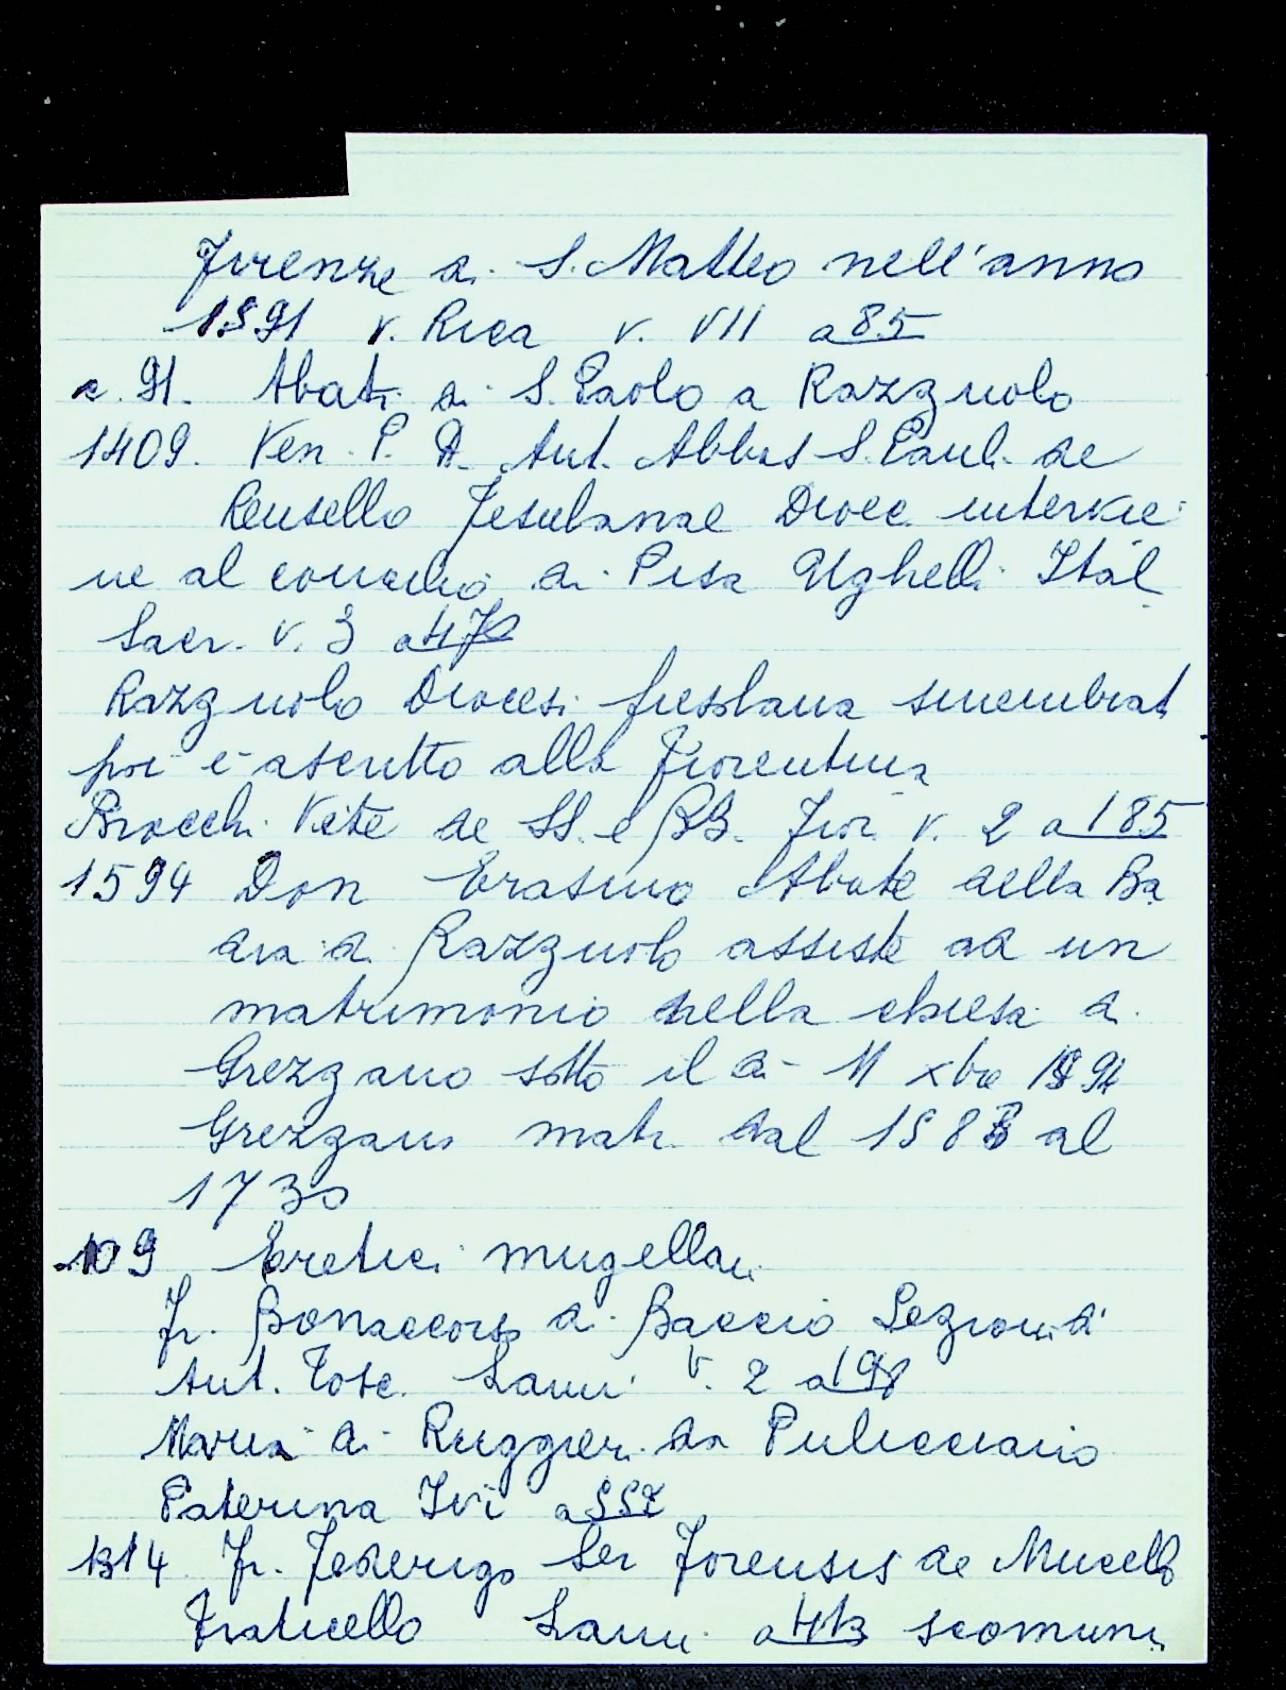 Firenze di S. Matteo nell'anno
1591 v. Rica v. VII a 85
c. 91. Abati di S. Paolo a Razzuolo
1409. Ven. P. D. Ant. Abbas S. Paul. de
Reusello Fesulanae Dioec. intervie
ne al concilio di Pisa Ughelli Ital
Sacr. v. 3
Razzuolo Diocesi fiesolana smembrat
poi e ascritto alla Fiorentina
Brocchi Vite de SS. e BB. Fior. v. 2 a 185
1594 Don Erasmo Abate della Ba
dia di Razzuolo assiste ad un
matrimonio nella chiesa di
Grezzano sotto il di 11 xbre
Grezzano matr. dal al
1730
109 Eretici mugellani
Fr. Bonaccorso di Baccio Lezioni di
Ant. Tosc. Lami v. 2 a
Maria di Ruggieri da Pulicciano
Paterina Ivi a 557
1314 Fr. Federigo Ser Forensis de Mucello
Fraticello Lami a scomuni